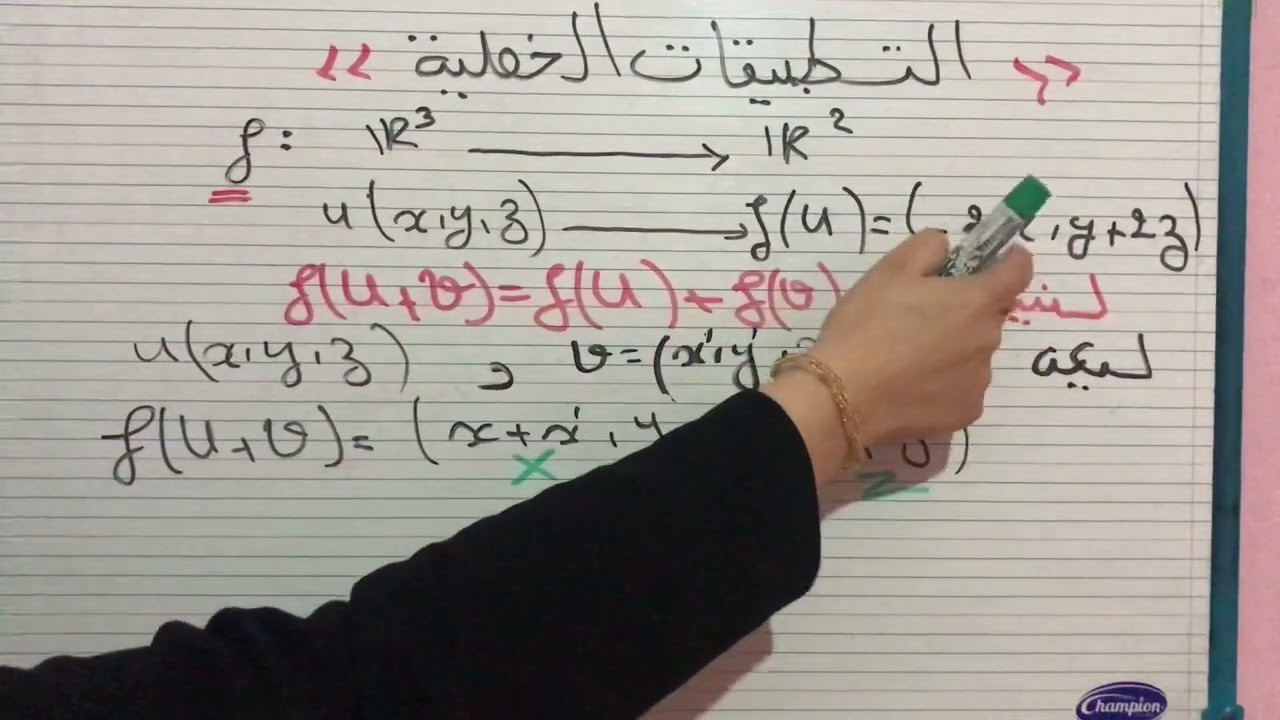 « التطبيقات الخطية »
f : IR³ → IR²
u(x,y,z) → f(u) = ( , y+2z)
f(u+v) = f(u) + f(v)
u(x,y,z) , v = (x',y' ليكن
f(u+v) = (x+x', y )
X
Champion